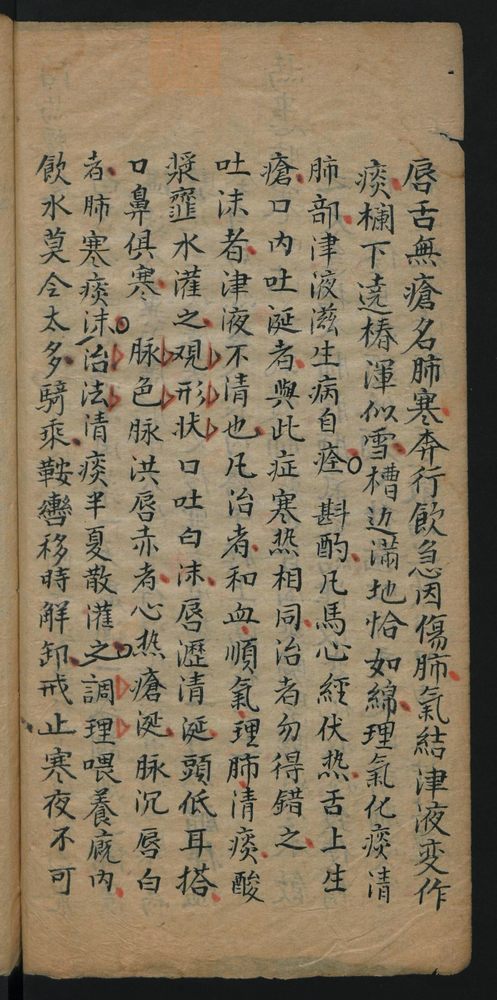 唇舌無瘡名肺寒奔行飲急因傷肺氣結津液变作
痰欄下遶樁渾似雪槽边滿地恰如綿理氣化痰清
肺部津液滋生病自痊 斟酌凡馬心經伏热舌上生
瘡口內吐涎者與此症寒热相同治者勿得錯之
吐沫者津液不清也凡治者和血順氣理肺清痰酸
漿虀水灌之观形状口吐白沫唇瀝清涎頭低耳搭
口鼻俱寒 脉色脉洪唇赤者心热瘡涎脉沉唇白
者肺寒痰沫治法清痰半夏散灌之調理喂養厩內
飲水莫令太多騎乘鞍轡移時解卸戒止寒夜不可